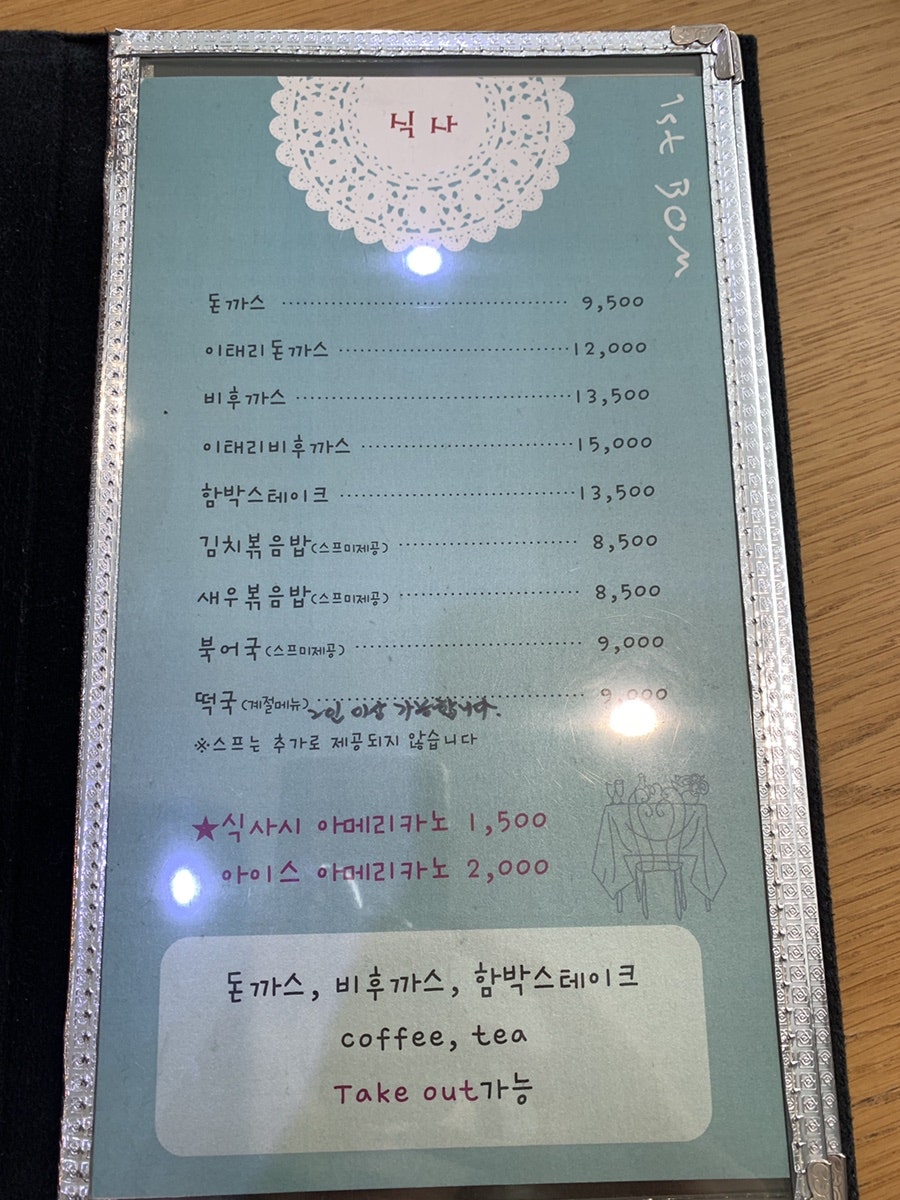 식사
1st BOM
돈까스 9,500
이태리돈까스 12,000
비후까스 13,500
이태리비후까스 15,000
함박스테이크 13,500
김치볶음밥(스프미제공) 8,500
새우볶음밥(스프미제공) 8,500
북어국(스프미제공) 9,000
떡국(계절메뉴) 2인 이상 가능합니다. 9,000
※스프는 추가로 제공되지 않습니다
★식사시 아메리카노 1,500
아이스 아메리카노 2,000
돈까스, 비후까스, 함박스테이크
coffee, tea
Take out가능